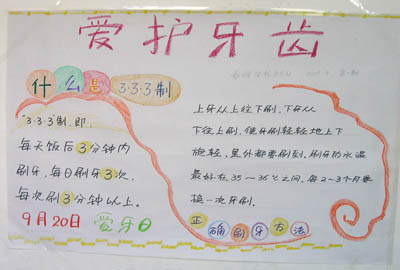 爱护牙齿
什么是3·3·3制
"3·3·3"制，即
每天饭后3分钟内
刷牙，每日刷牙3次，
每次刷3分钟以上。
9月20日 爱牙日
上牙从上往下刷，下牙从
下往上刷，使牙刷轻轻地上下
旋转，里外都要刷到，刷牙的水温
最好在35～36℃之间，每2～3个月要
换一次牙刷。
正确刷牙方法